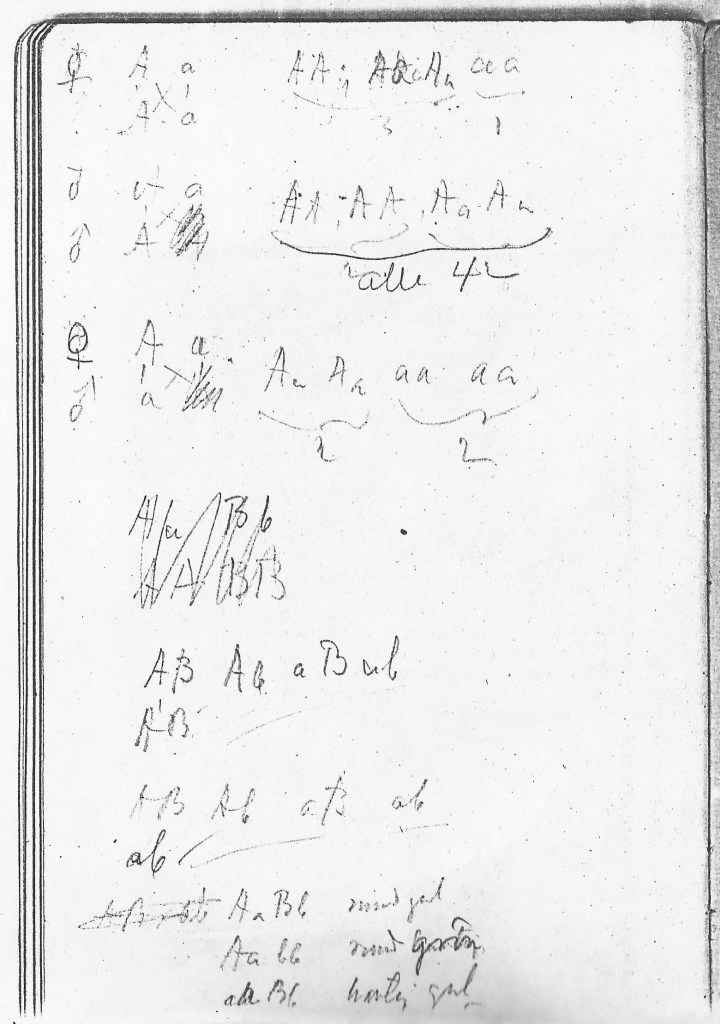 ♀ A a AA; Aa Aa aa
A a 3 1
♂ A a AA; AA, Aa Aa
♂ A alle 4 2
♀ A a Aa Aa aa aa
♂ a
2 2
Aa Bb
AA BB
AB Ab aB ab
AB
AB Ab aB ab
ab
AaBb rund gul
Aabb rund grön
aaBb kantig gul